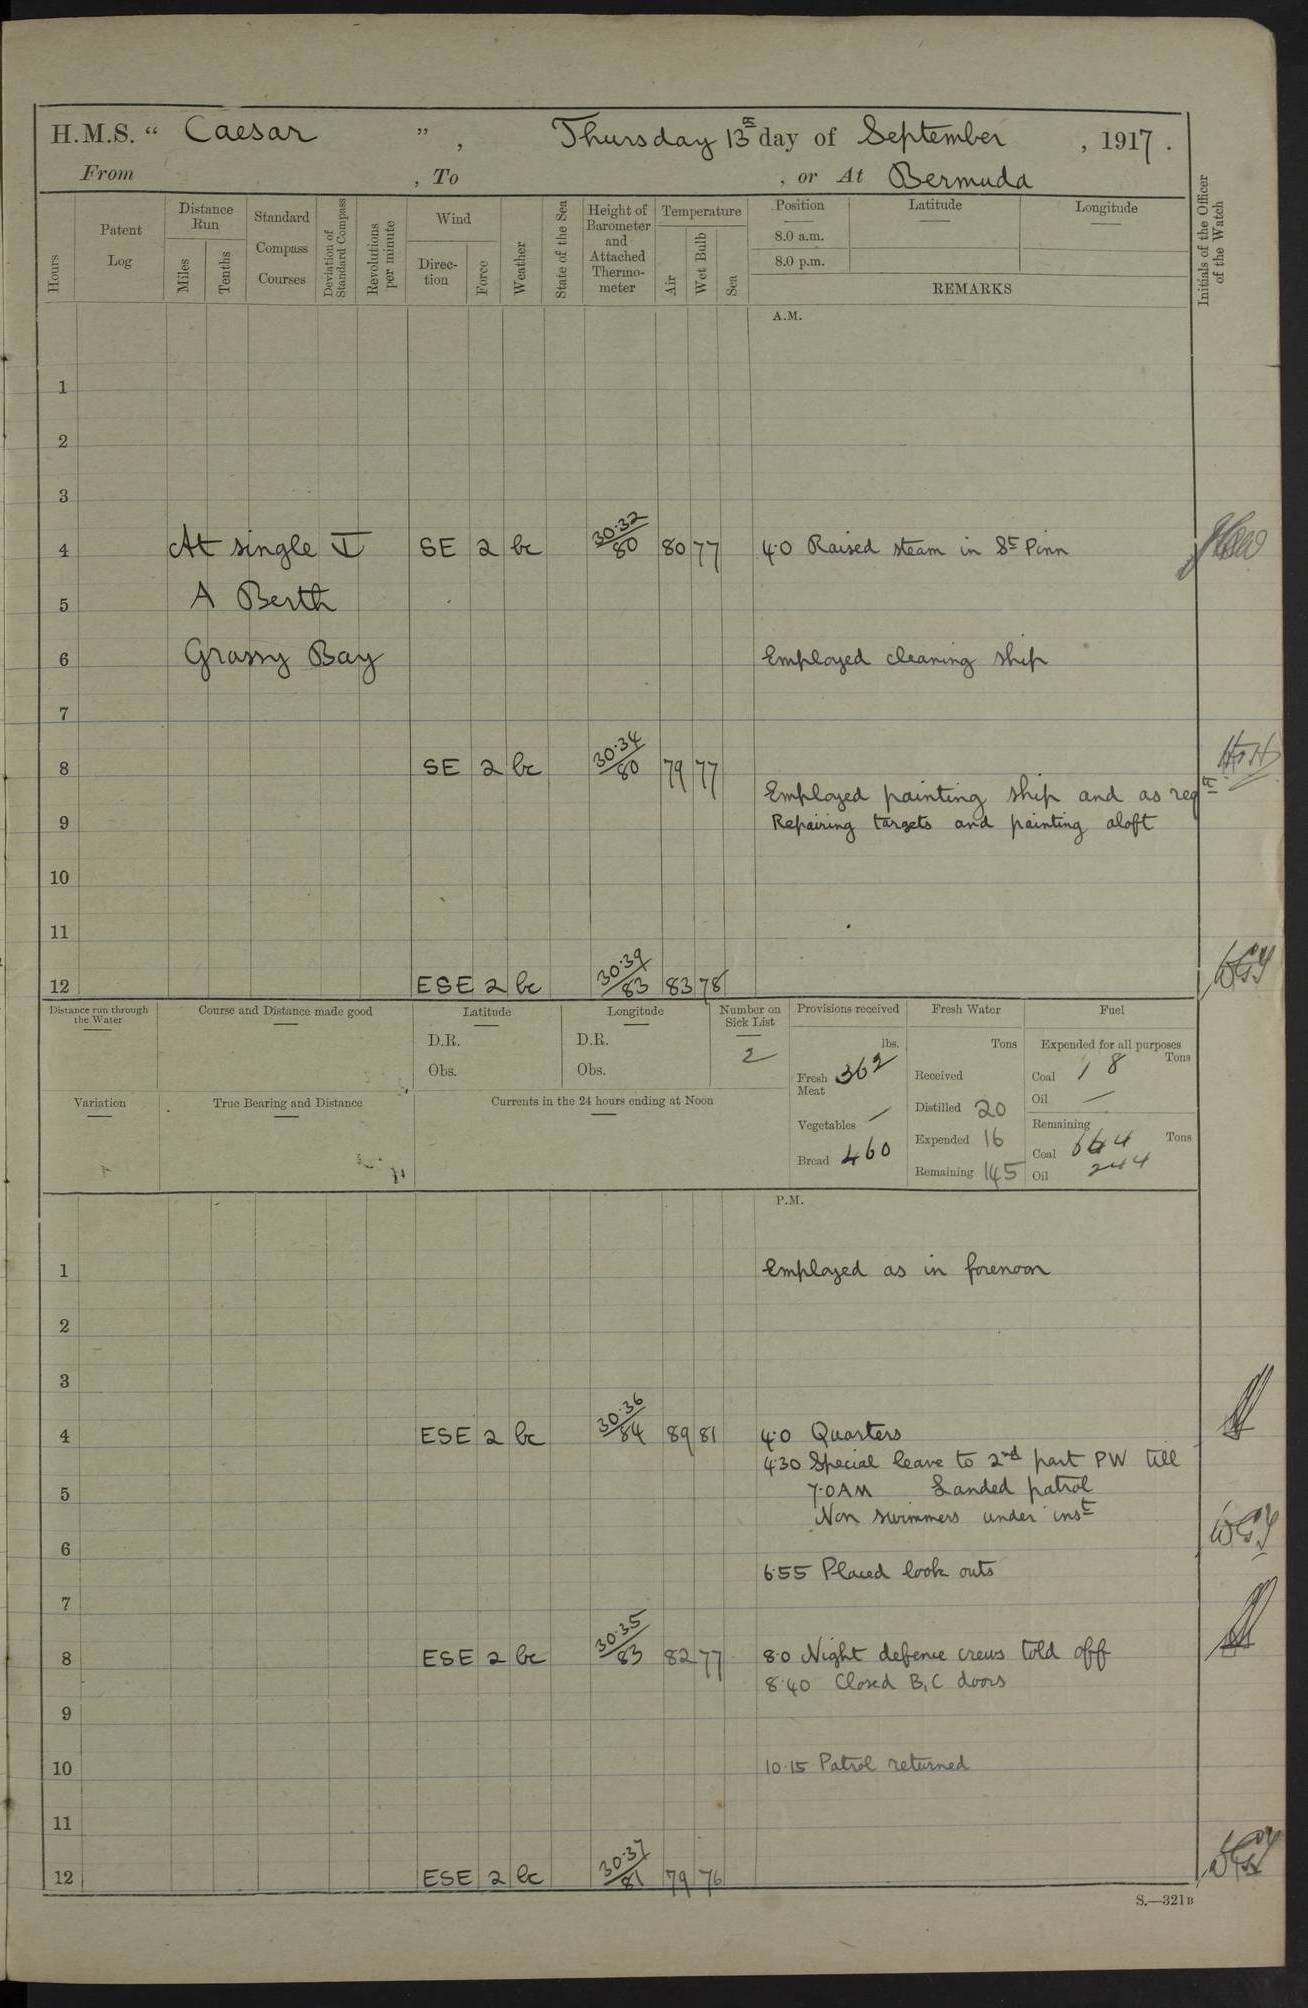 H.M.S. “ Caesar ” , Thursday 13th day of September , 1917 .
From , To , or At Bermuda
Hours
Patent Log
Distance Run
Miles
Tenths
Standard Compass Courses
Deviation of Standard Compass
Revolutions per minute
Wind
Direc- tion
Force
Weather
State of the Sea
Height of Barometer and Attached Thermo- meter
Temperature
Air
Wet Bulb
Sea
Position
8.0 a.m.
8.0 p.m.
Latitude
Longitude
REMARKS
Initials of the Officer of the Watch
A.M.
1
2
3
4 At single SE 2 bc 30·32/80 80 77 4·0 Raised steam in St Pinn
5 A Berth
6 Grassy Bay Employed cleaning ship
7
8 SE 2 bc 30·34/80 79 77
Employed painting ship and as reqd
9 Repairing targets and painting aloft
10
11
12 ESE 2 bc 30·39/83 83 78 WGY
Distance run through the Water
Course and Distance made good
Latitude
D.R.
Obs.
Longitude
D.R.
Obs.
Number on Sick List
2
Provisions received
lbs.
Fresh Meat 362
Vegetables /
Bread 460
Fresh Water
Tons
Received
Distilled 20
Expended 16
Remaining 145
Fuel
Expended for all purposes
Tons
Coal 18
Oil —
Remaining
Coal 664 Tons
Oil 244
Variation
True Bearing and Distance
Currents in the 24 hours ending at Noon
P.M.
1 Employed as in forenoon
2
3
4 ESE 2 bc 30·36/84 89 81 4·0 Quarters
4·30 Special leave to 2nd part PW till
5 7·0AM Landed patrol
Non swimmers under inst
6 WGY
6·55 Placed look outs
7
8 ESE 2 bc 30·35/83 82 77 8·0 Night defence crews told off
8·40 Closed B, C doors
9
10 10·15 Patrol returned
11
12 ESE 2 bc 30·37/81 79 76 WGY
S.—321B